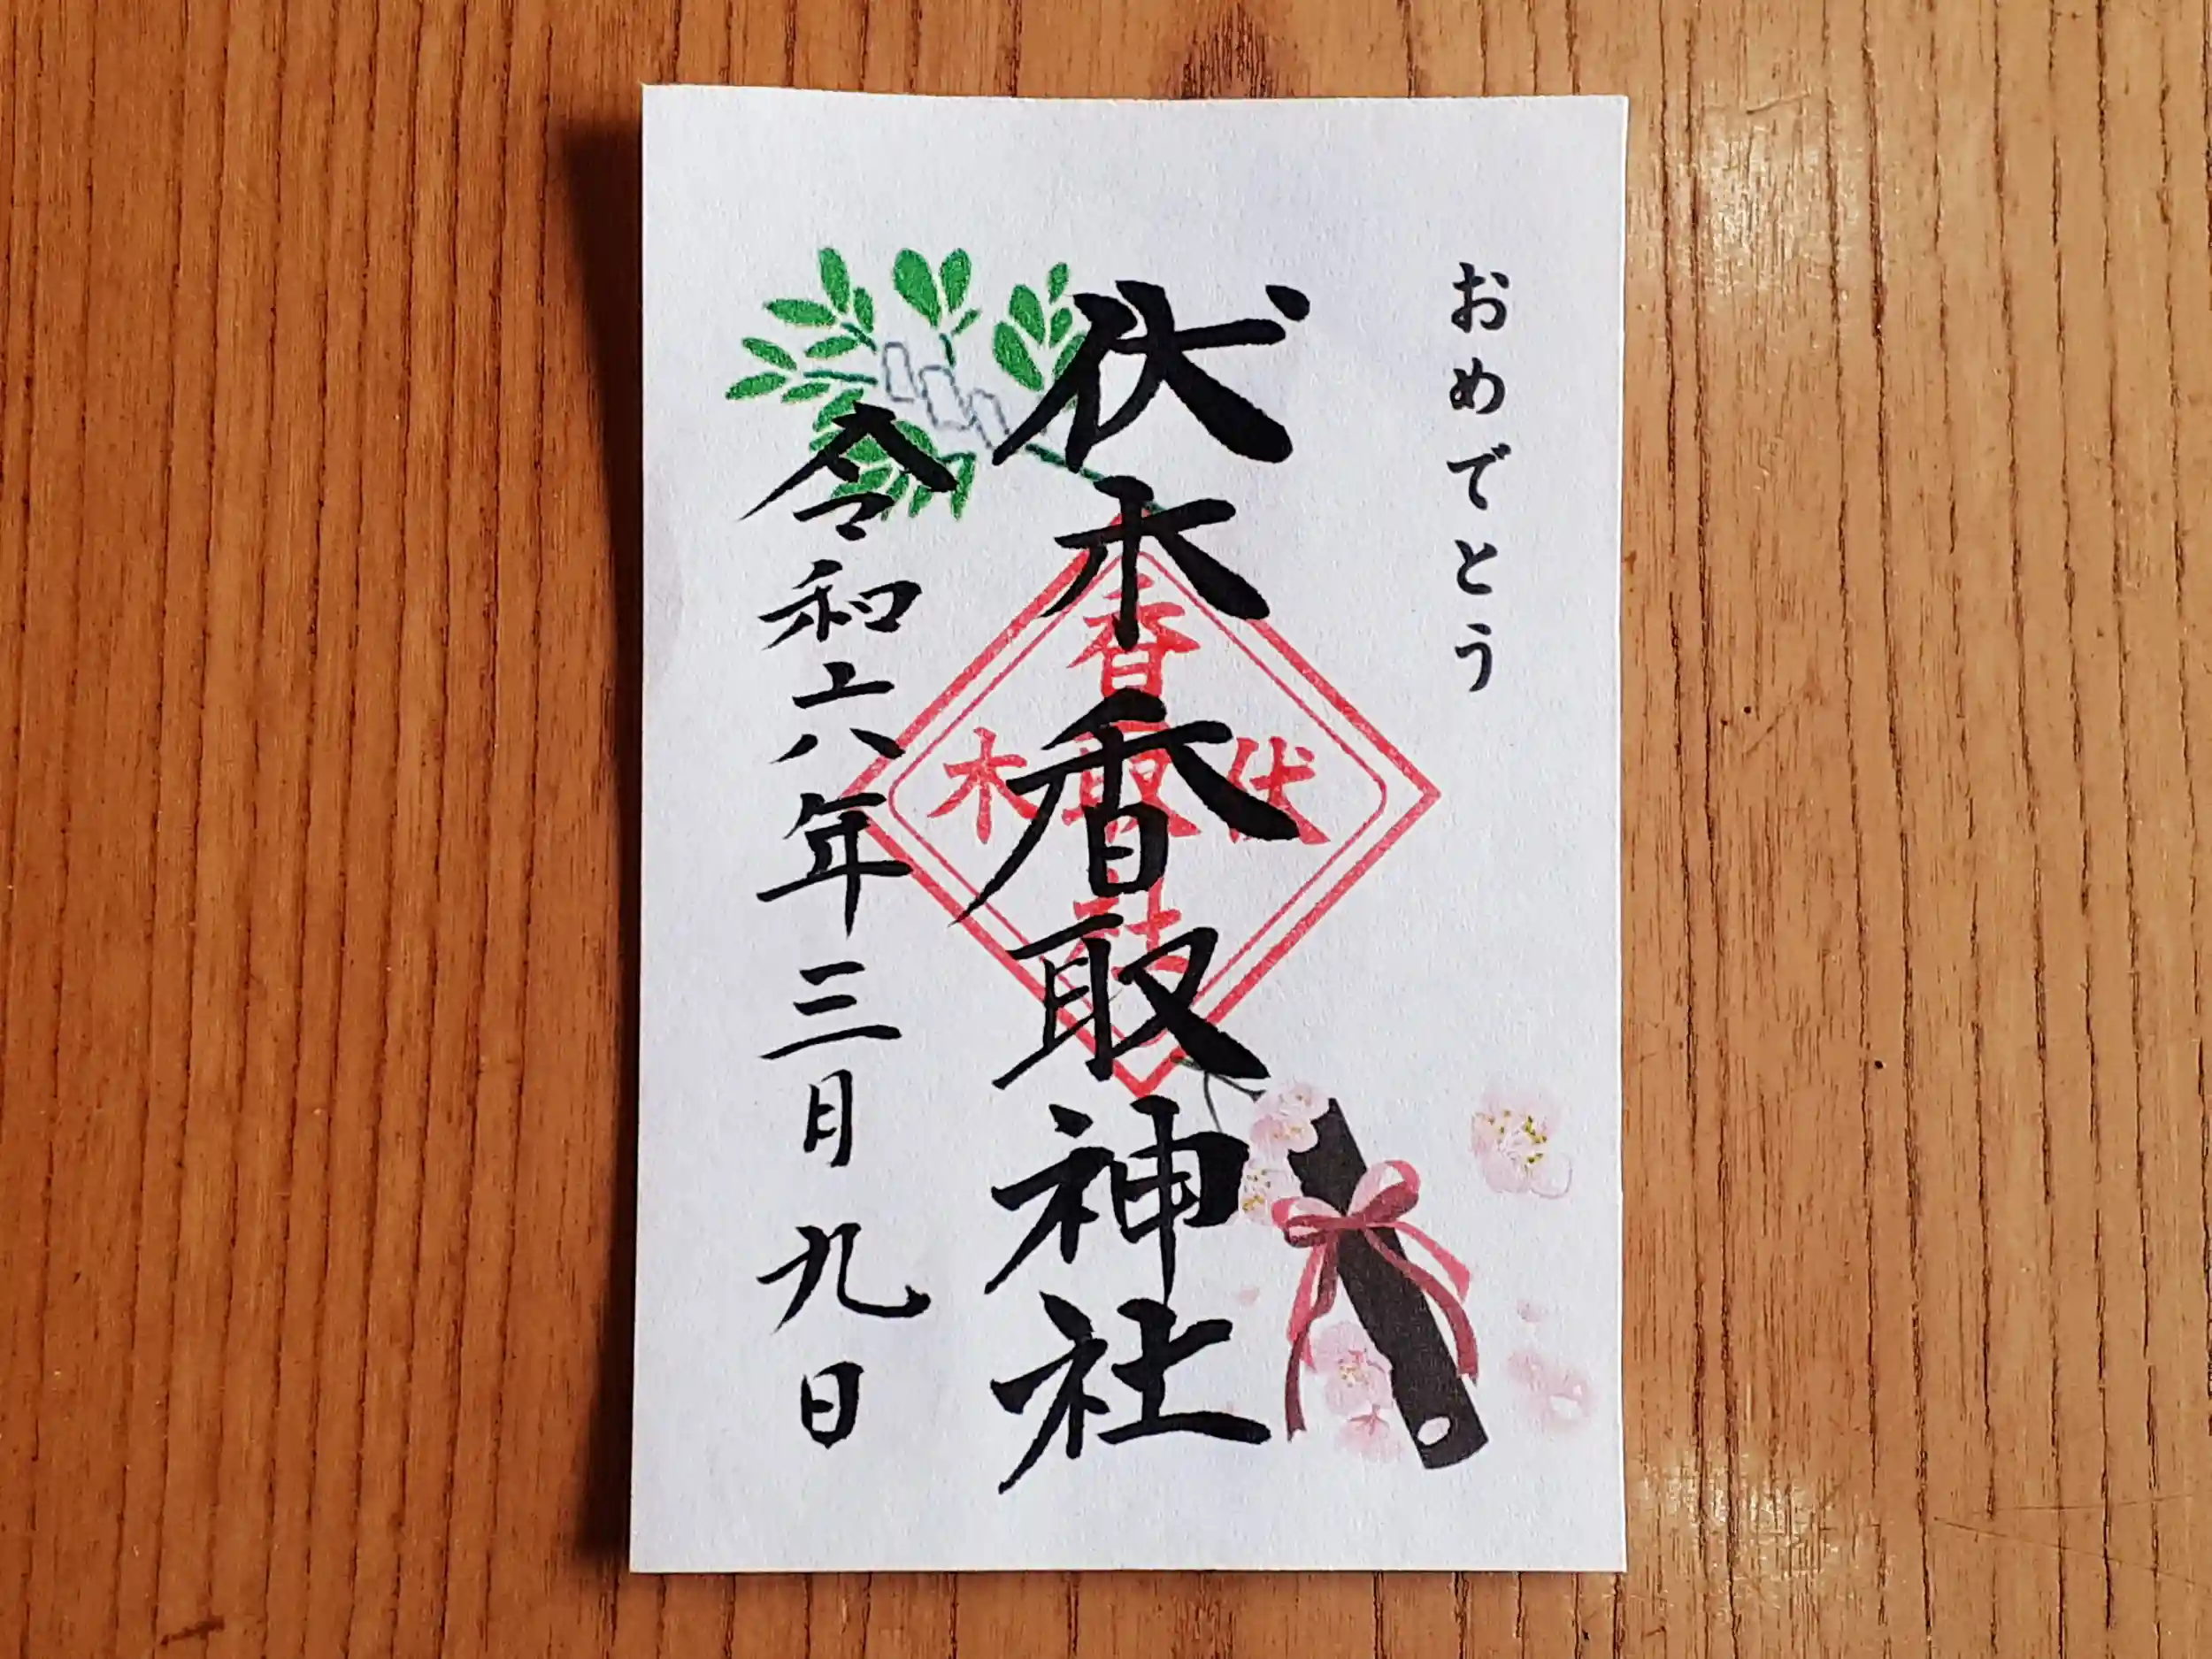 おめでとう
伏木香取神社
香取社
伏木
令和六年三月九日